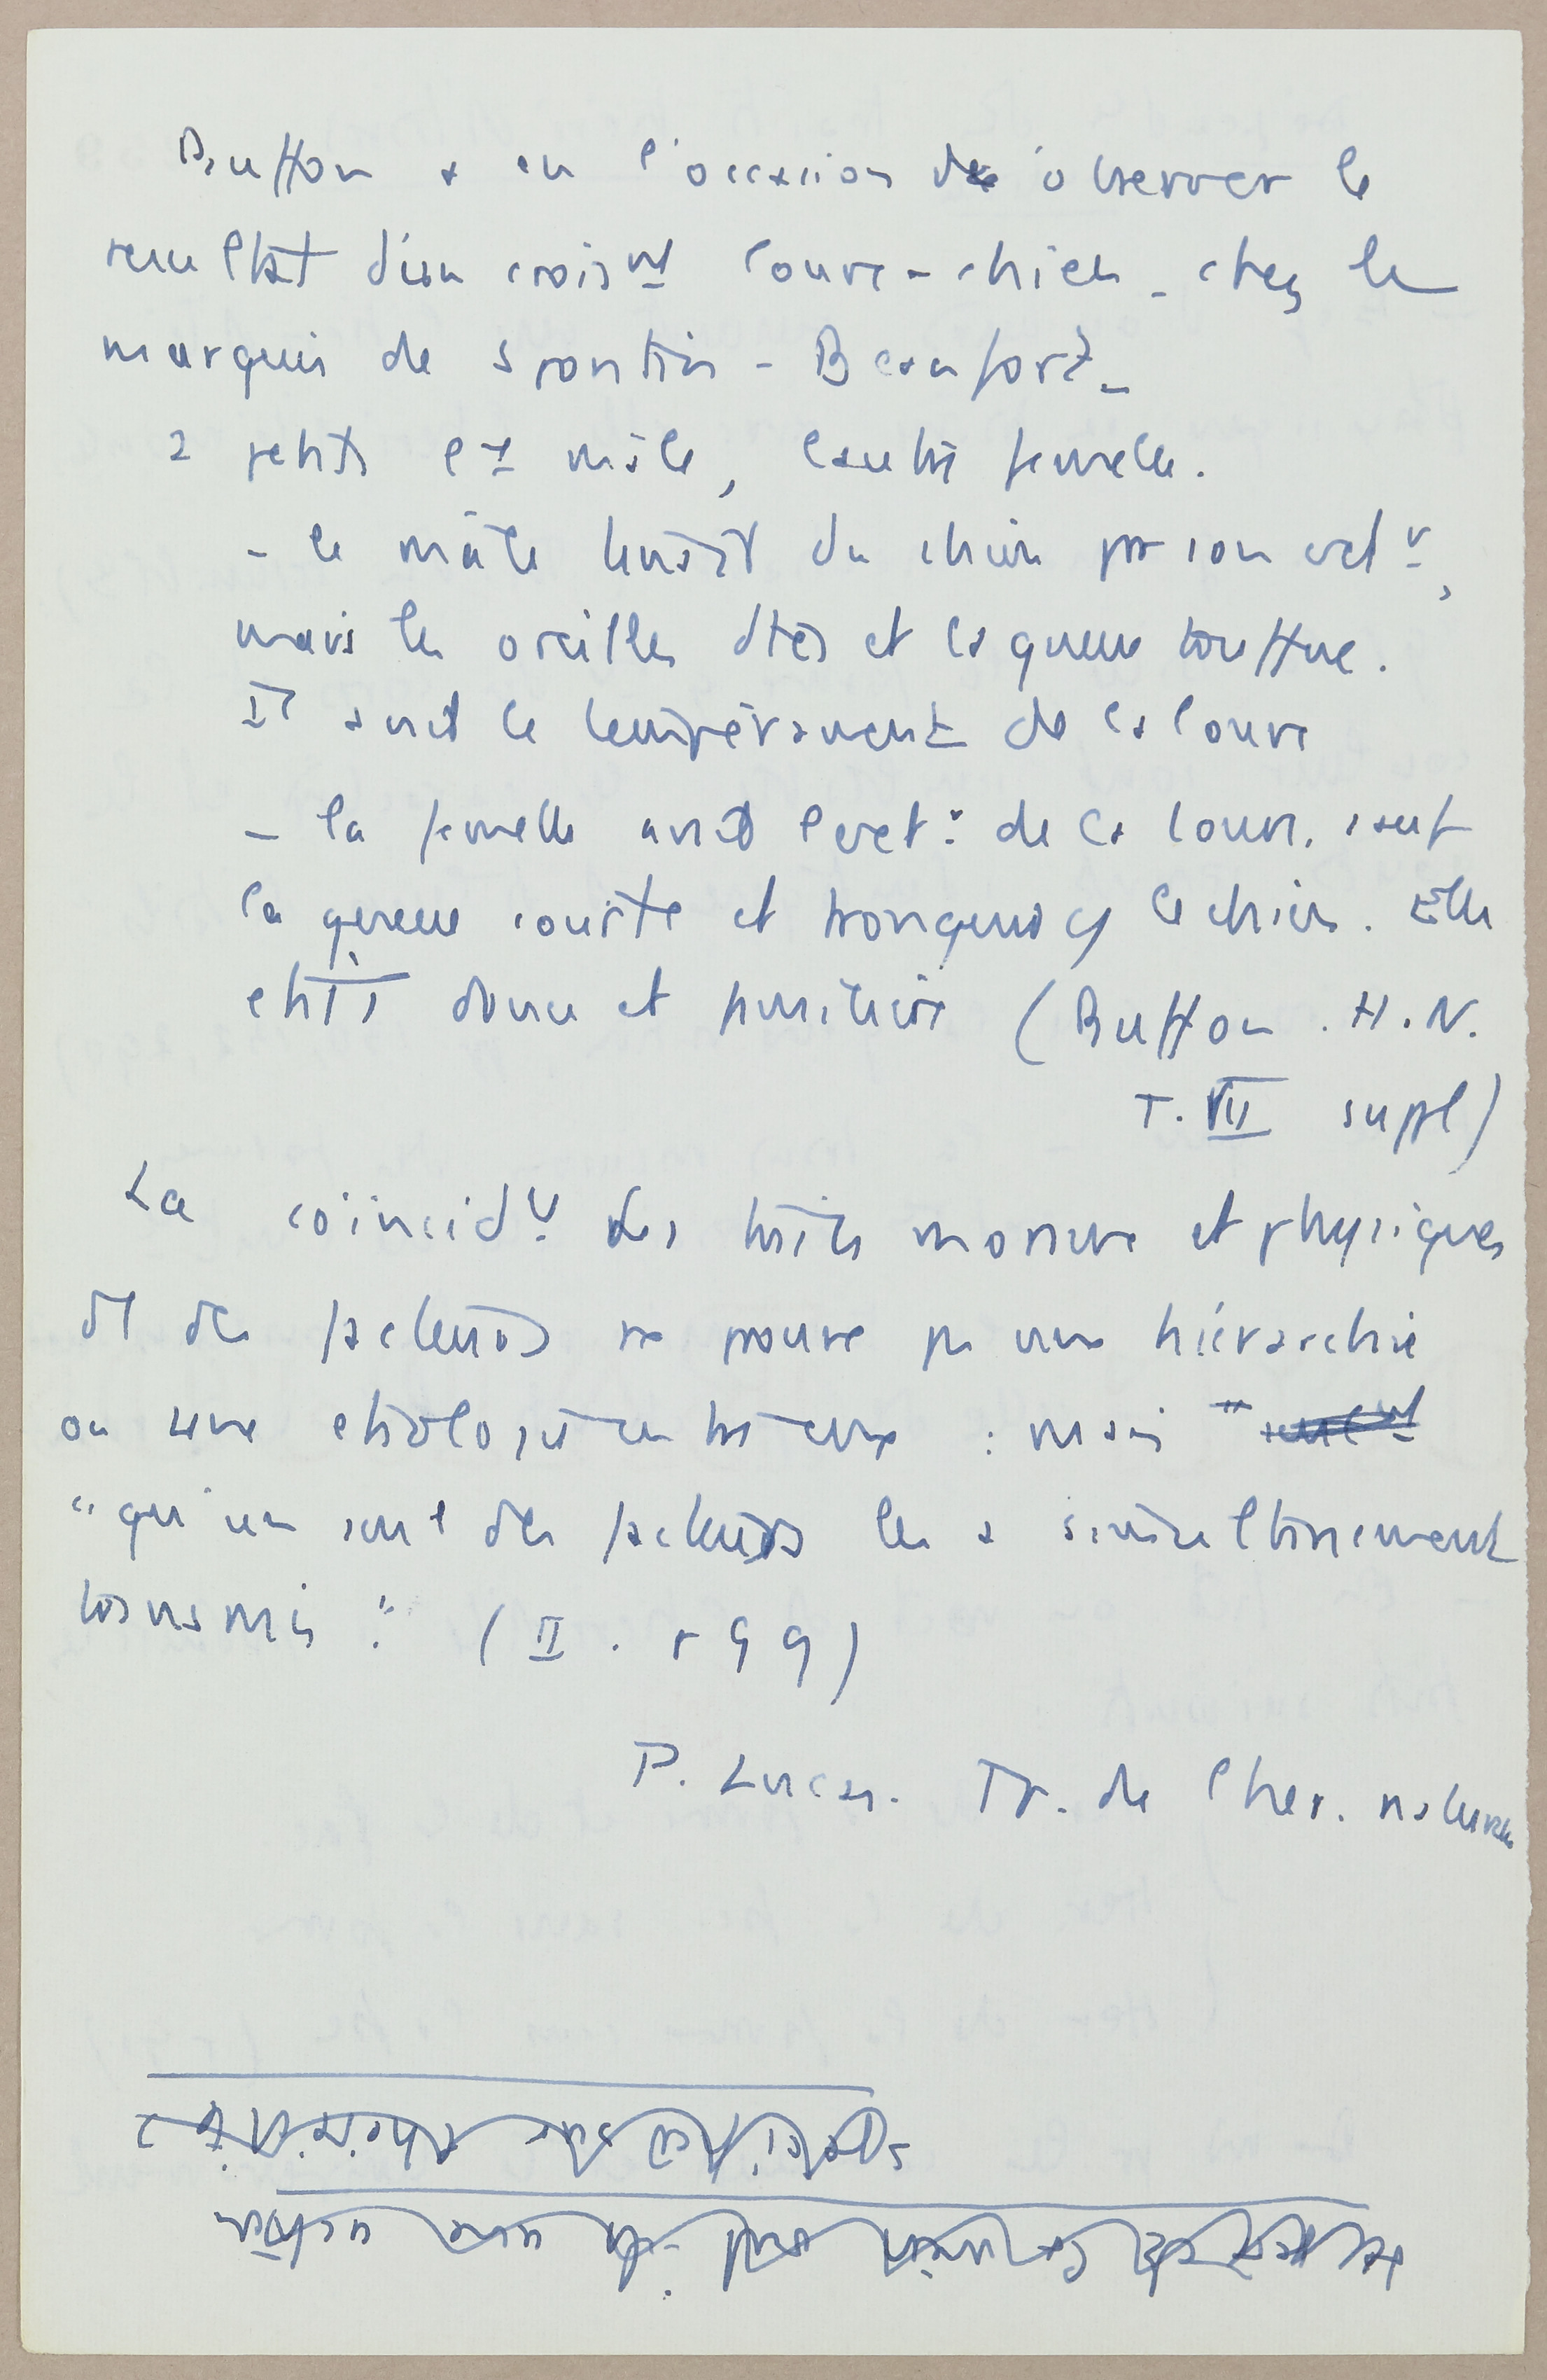 Buffon a eu l'occasion d'observer le
resultat d'un croist louve - chien - chez le
marquis de Spontin - Beaufort -
2 petits mâle, l'autre femelle.
- le mâle tenait du chien par son ext r,
mais les oreilles dtes et la queue touffue.
Il avait le tempérament de la louve
- la femelle avait l'ext r de la louve, sauf
la queue courte et tronquée le chien. Elle
était douce et familière (Buffon. H. N.
T. VII suppl)
La coïncid des traits moraux et physiques
des facteurs ne prouve pas une hiérarchie
ou une entre eux : mais "
"qu'un seul des facteurs les a simultanément
transmis". (II. 599)
P. Lucas. Tr. de l'her. naturelle